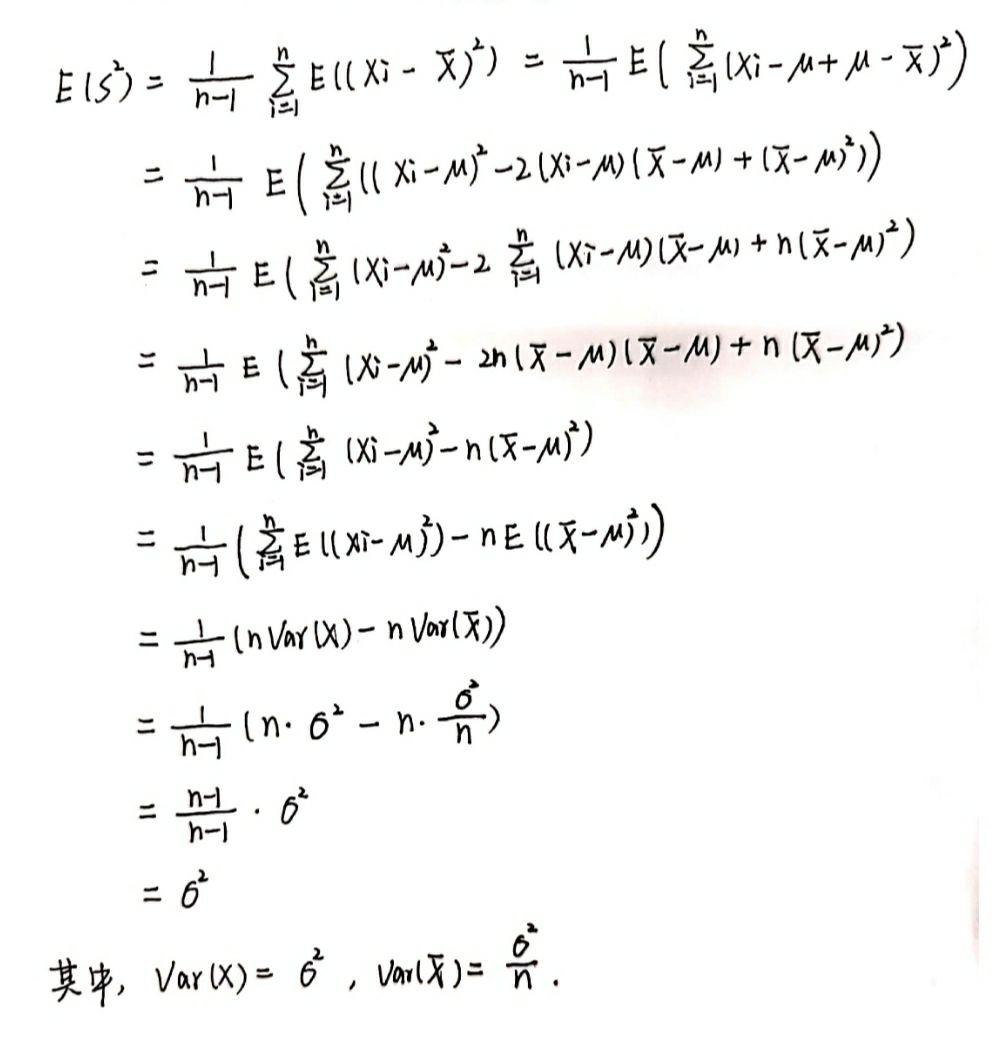 E(S²) = \frac{1}{n-1} \sum_{i=1}^{n} E((Xi - \bar{X})²) = \frac{1}{n-1} E( \sum_{i=1}^{n} (Xi - μ + μ - \bar{X})²)
= \frac{1}{n-1} E( \sum_{i=1}^{n} ((Xi - μ)² - 2(Xi - μ)(\bar{X} - μ) + (\bar{X} - μ)²))
= \frac{1}{n-1} E( \sum_{i=1}^{n} (Xi - μ)² - 2 \sum_{i=1}^{n} (Xi - μ)(\bar{X} - μ) + n(\bar{X} - μ)²)
= \frac{1}{n-1} E( \sum_{i=1}^{n} (Xi - μ)² - 2n(\bar{X} - μ)(\bar{X} - μ) + n(\bar{X} - μ)²)
= \frac{1}{n-1} E( \sum_{i=1}^{n} (Xi - μ)² - n(\bar{X} - μ)²)
= \frac{1}{n-1} ( \sum_{i=1}^{n} E((Xi - μ)²) - nE((\bar{X} - μ)²))
= \frac{1}{n-1} (nVar(X) - nVar(\bar{X}))
= \frac{1}{n-1} (n· σ² - n· \frac{σ²}{n})
= \frac{n-1}{n-1} · σ²
= σ²
其中, Var(X) = σ² , Var(\bar{X}) = \frac{σ²}{n} .